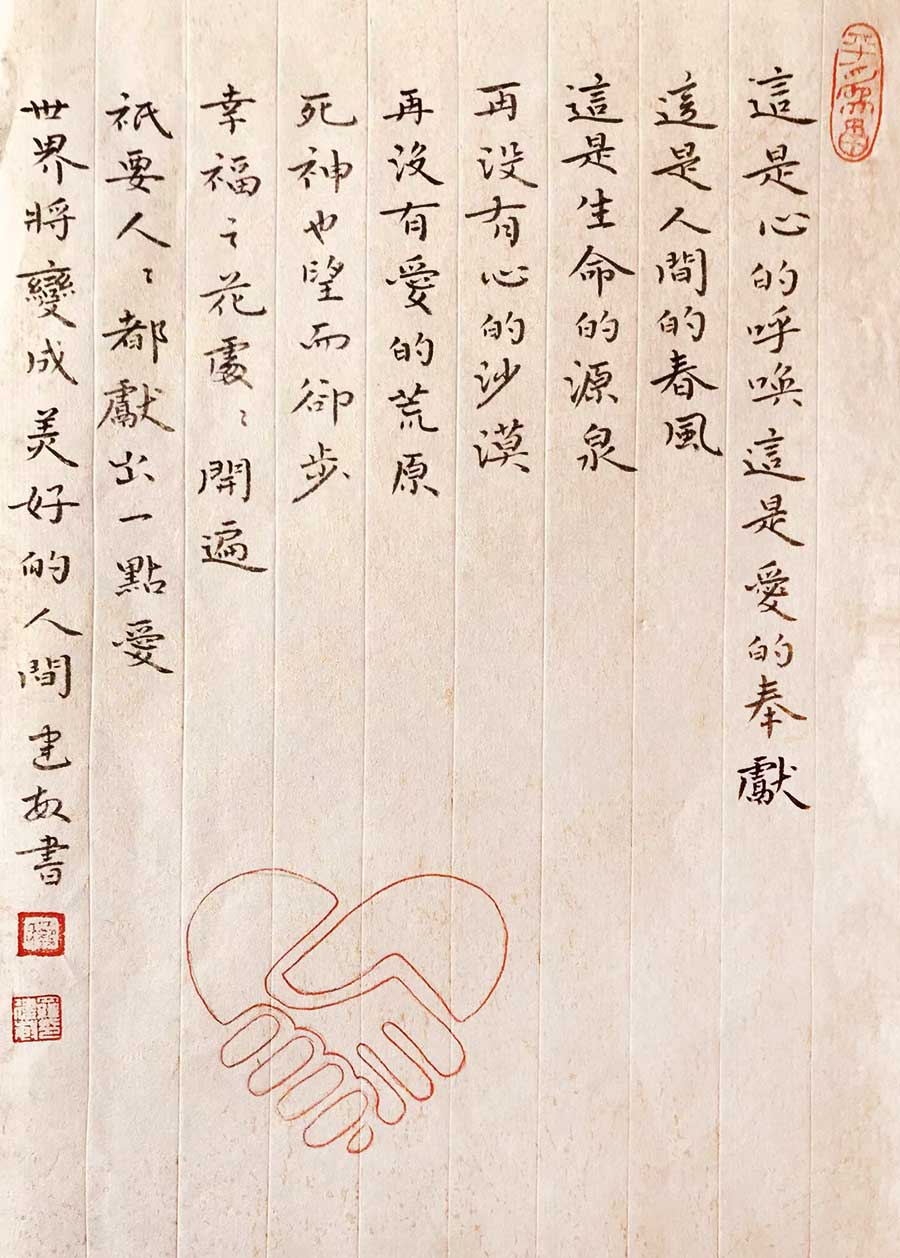 這是心的呼喚這是愛的奉獻
這是人間的春風
這是生命的源泉
再没有心的沙漠
再没有愛的荒原
死神也望而卻步
幸福之花處〻開遍
祇要人〻都獻出一點愛
世界將變成美好的人間 建敏書